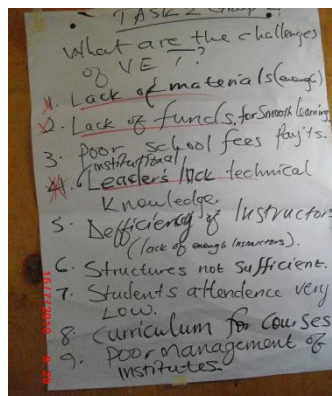 TASK 2 Group
What are the challenges
of VET?
1. Lack of materials (enough)
2. Lack of funds, for smooth learning
3. Poor school fees payt's.
(institutional)
4. Leaders lack technical
Knowledge.
5. Defficiency of Instructors
(lack of enough Instructors).
6. Structures not sufficient.
7. Students attendence very
Low.
8. Curriculum for courses
9. Poor management of
institutes.
15/7/2010 9:29